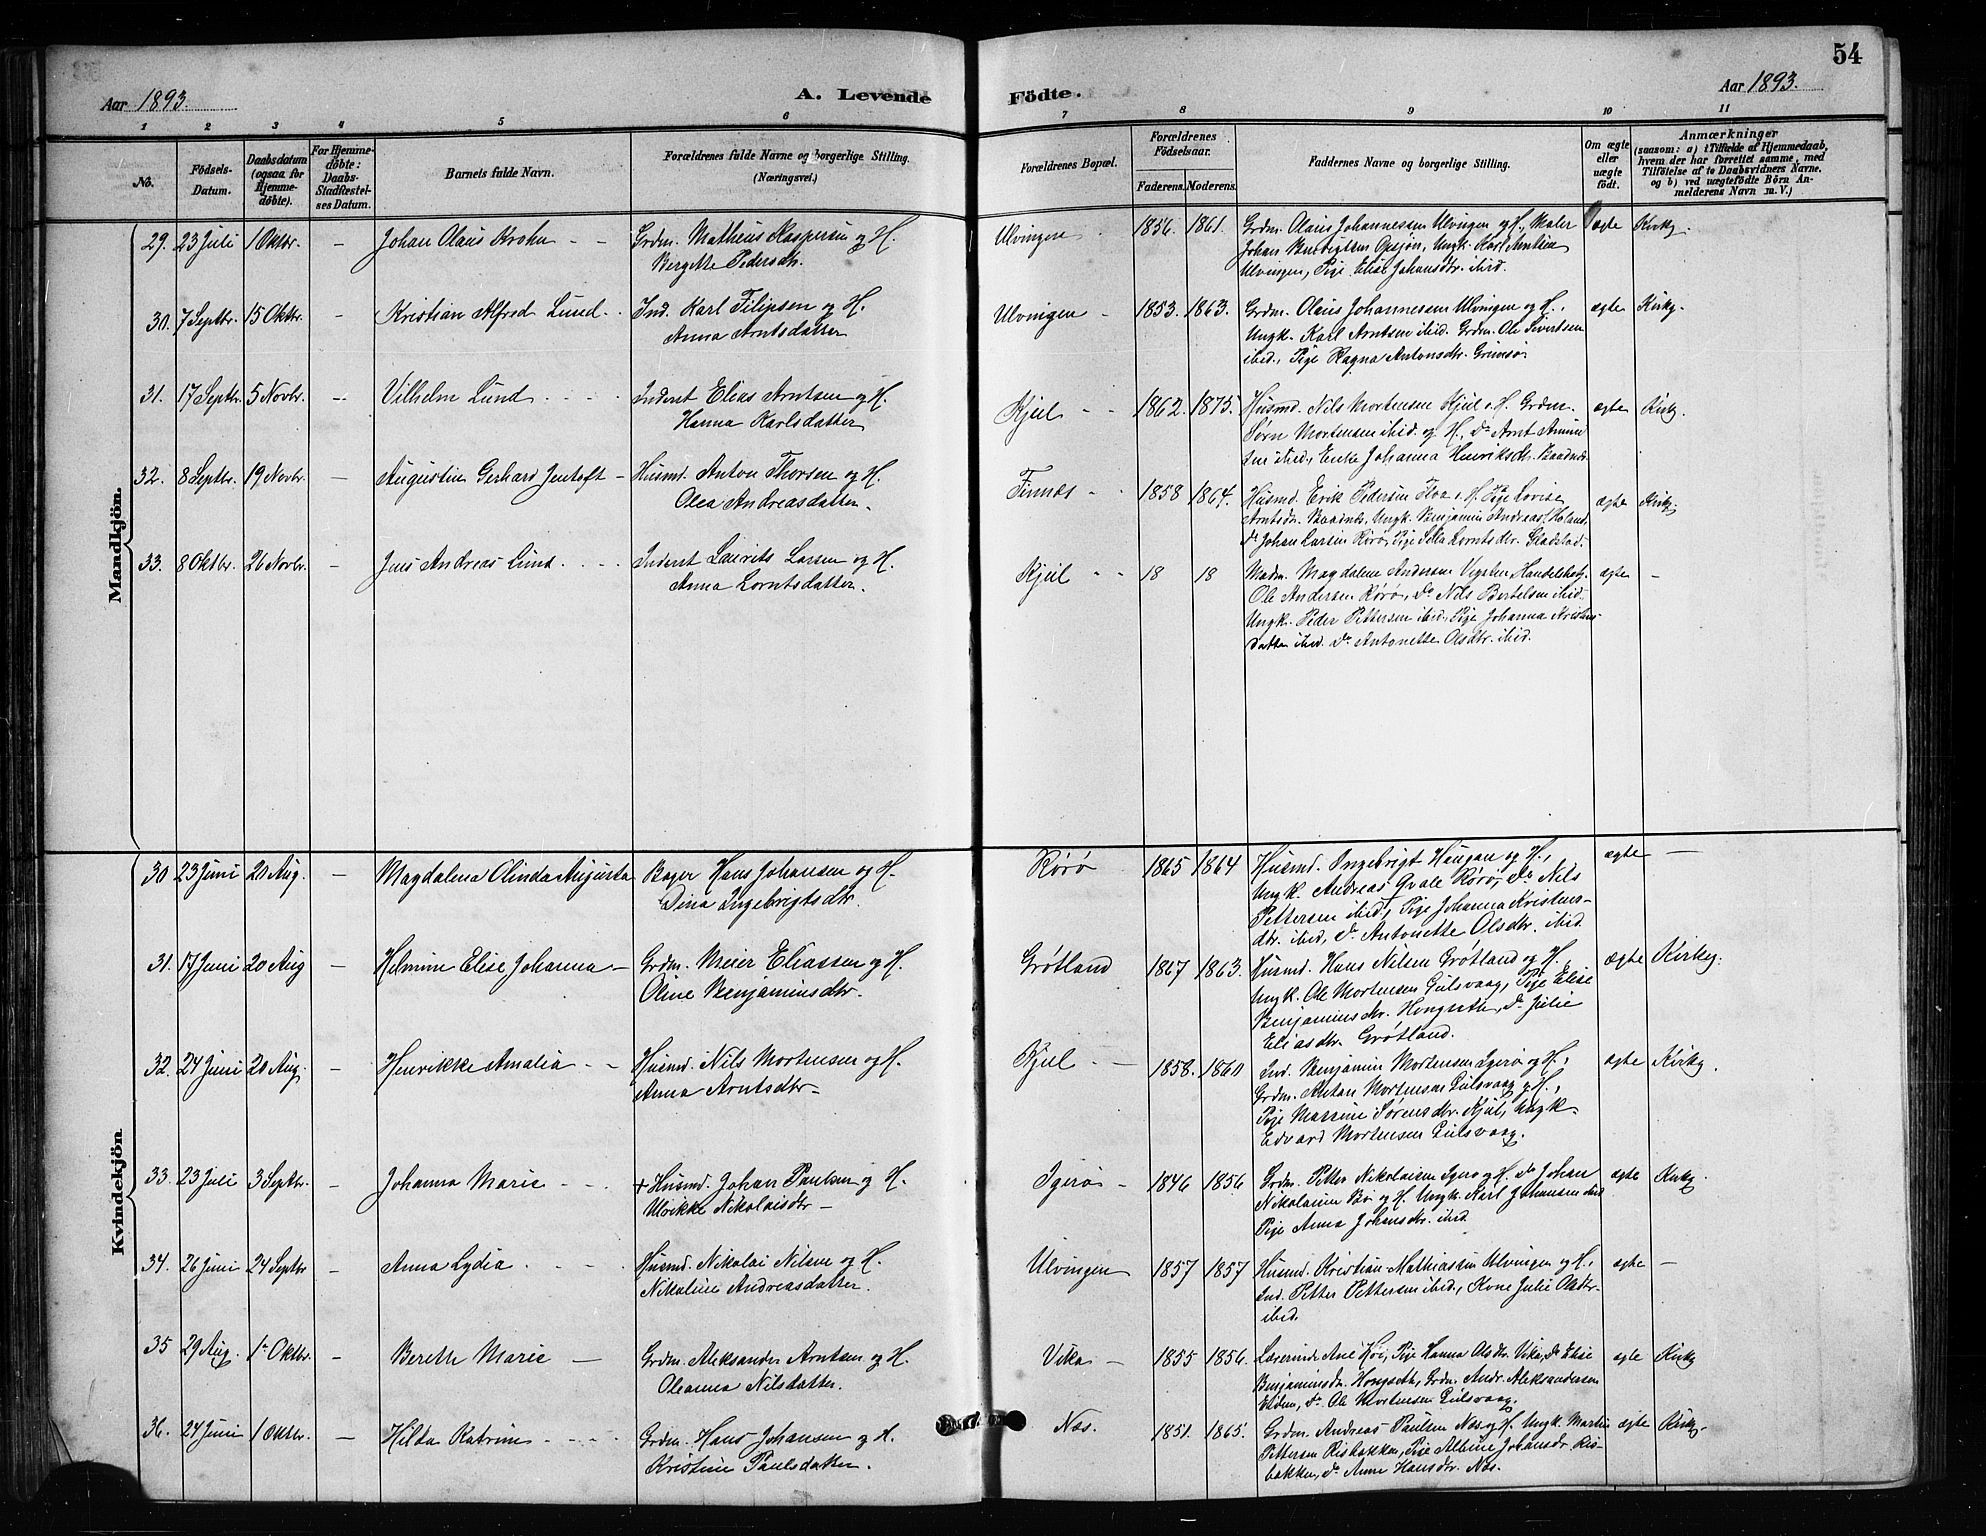 54
Aar 1893.
A. Levende Födte.
Aar 1893.
1 2 3 4 5 6 7 8 9 10 11
No.
Födsels-Datum.
Daabsdatum (ogsaa for Hjemme-döbte).
For Hjemme-döbte: Daabs-Stadfæstel-ses Datum.
Barnets fulde Navn.
Forældrenes fulde Navne og borgerlige Stilling. (Næringsvei.)
Forældrenes Bopæl.
Forældrenes Födselsaar.
Faderens. Moderens.
Faddernes Navne og borgerlige Stilling.
Om ægte eller uægte födt.
Anmærkninger
(saasom: a) i Tilfælde af Hjemmedaab, hvem der har forrettet samme, med Tilföielse af to Daabsvidners Navne, og b) ved uægtefödte Börn An-melderens Navn m. V.)
Mandkjön.
29. 23 Juli 1 Oktbr. – Johan Olaus Krohn – – Grdm. Matheus Kaspersen og H. Ulvingen 1856 1861. Grdm. Olaus Johannessen Ulvingen og H., Maler ægte Kirkg.
Bergitte Pedersdtr. Johan Opsjøn, Ungk. Karl Arntsen
Ulvingen, Pige Elise Johansdtr. ibid.
30. 7 Septbr. 15 Oktbr. – Kristian Alfred Lund. Ind. Karl Filipsen og H. Ulvingen – 1853. 1863. Grdm. Olaus Johannessen Ulvingen og H., ægte Kirkg.
Anna Arntsdatter Ungk. Karl Arntsen ibid. Grdm. Ole Sivertsen
ibid., Pige Ragna Antonsdtr. Grimsø
31. 17 Septbr. 5 Novbr. – Vilhelm Lund Inderst Elias Arntsen og H. Kjul – – 1862. 1875. Husmd. Nils Mortensen Kjul og H. Grdm. ægte Kirkg.
Hanna Karlsdatter Sørn Mortensen ibid. og H., Do Arnt
ibid., Enke Johanna Henriksdtr. Baadnes
32. 8 Septbr. 19 Novbr. – Augustin Gerhard Jentoft – Husmd. Anton Thorsen og H. Finnes – 1858 1864. Husmd. Erik Pedersen og H. Pige Lovise ægte Kirkg.
Olea Andreasdatter. Arntsdtr. Baadnes, Ungk. Benjamin Andreas Holand,
Do Johan Larsen Rørø, Pige Lorntsdtr. Gladstad.
33. 8 Oktbr. 26 Novbr. – Jens Andreas Lund Inderst Laurits Larsen og H. Kjul – – 18 18 Madm. Magdalene Andersen Vegsten, Handelsbetj. ægte –
Anna Lorntsdatter. Ole Andersen Rørø, Do Nils Bertelsen ibid.
Ungk. Peder Pettersen ibid., Pige Johanna Kristens-
datter ibid. Do Antonette Olsdtr. ibid.
Kvindekjön
30 23 Juni 20 Aug. – Magdalena Olinda Augusta Bager Hans Johansen og H. Rørø 1865 1864 Husmd. Ingebrigt Haugan og H., ægte –
Dina Ingebrigtsdtr. Ungk. Andreas Qvale Rørø, Do Nils
Pettersen ibid., Pige Johanna Kristens-
dtr. ibid., Do Antonette Olsdtr. ibid.
31. 17 Juni 20 Aug – Helmine Elise Johanna – Grdm. Meier Eliassen og H. Grøtland 1867 1863. Husmd. Hans Nilsen Grøtland og H., ægte Kirkg.
Oline Benjaminsdtr. Ungk. Ole Mortensen Gulsvaag, Pige Elise
Benjaminsdtr. Hongseth, Do Julie
Eliasdtr. Grøtland.
32. 24 Juni 20 Aug. – Henrikke Amalia – – Husmd. Nils Mortensen og H. Kjul – 1858. 1860 Ind. Benjamin Mortensen Igerø og H., ægte Kirkg.
Anna Arntsdtr – Grdm. Anton Mortensen Gulsvaag og H.,
Pige Massine Sørensdtr. Kjul, Ungk.
Edvard Mortensen Gulsvaag.
33. 23 Juli 3 Septbr. – Johanna Marie + Husmd. Johan Paulsen og H. Igerø – 1846 1856 Grdm. Petter Nikolaisen Igerø og H. Do Johan ægte Kirkg.
Ulrikke Nikolaisdtr – Nikolaisen Bø og H. Ungk. Karl Johansen ibid.
Pige Anna Johansdtr. ibid.
34. 26 Juni 24 Septbr – Anna Lydia Husmd. Nikolai Nilsen og H. Ulvingen 1857 1857 Husmd. Kristian Mathiassen Ulvingen og H., ægte –
Nikoline Andreasdatter. Ind. Petter Pettersen ibid., Kone Julie Olsdtr.
ibid.
35 29 Aug. 1 Oktbr. – Bereth Marie – Grdm. Aleksander Arntsen og H. Vika – 1855 1856. Lærerinde Ane Høi, Pige Hanna Olsdtr. Vika, Do Elise ægte Kirkg
Oleanna Nilsdatter. Benjaminsdtr. Hongseth, Grdm. Andr. Aleksandersen
Do Ole Mortensen Gulsvaag.
36. 24 Juni 1 Oktbr. – Hilda Katrine Grdm. Hans Johansen og H. Nes. 1851. 1865. Grdm. Andreas Paulsen Nes og H. Ungk. Martin ægte Kirkg.
Kristine Paulsdatter. Pettersen Risbakken, Pige Albine Johansdtr. Ris-
bakken, Do Anne Hansdtr. Nes.